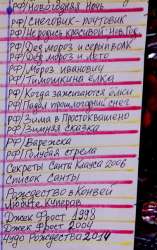 РФ/Новогодняя Ночь
РФ/Снеговик-почтовик
РФ/Не родись красивой Нов. Год
РФ/Дед Мороз и серый волк
РФ/Дед Мороз и лето
РФ/Мороз Иванович
РФ/Тимошкина ёлка
РФ/Когда зажигаются елки
РФ/Падал прошлогодний снег
РФ/Зима в Простоквашено
РФ/Зимняя сказка
РФ/Варежка
РФ/Голубая стрела
Секреты Санта Клауса 2006
Список Санты
Рождество в Конвей
Любите Куперов
Джек Фрост 1998
Джек Фрост 2004
Чудо Рождества 2014